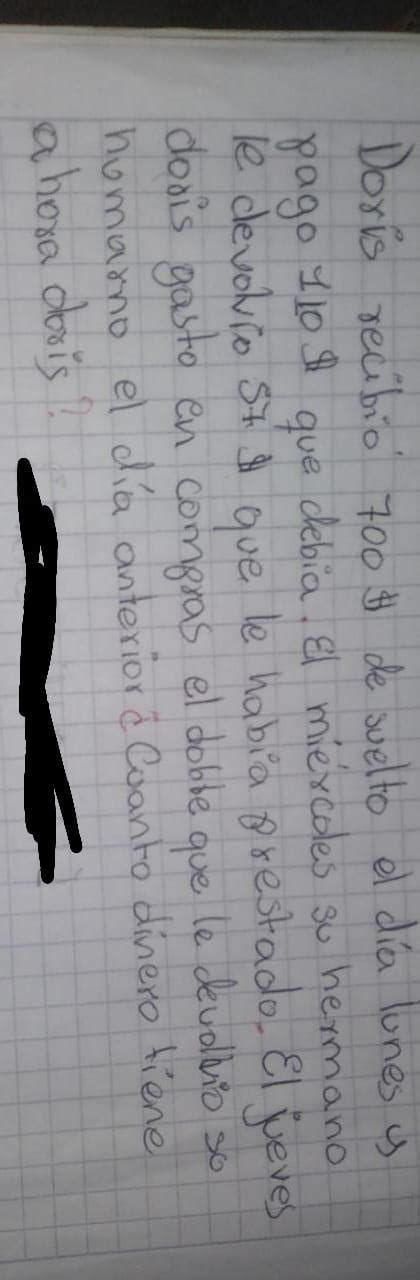 Doris recibió 700$ de suelto el día lunes y
pago 110$ que debia. El miércoles su hermano
le devolvio 57$ que le habia prestado. El jueves
doris gasto en compras el doble que le devolvio su
humarno el día anterior ¿Cuanto dinero tiene
ahora doris?